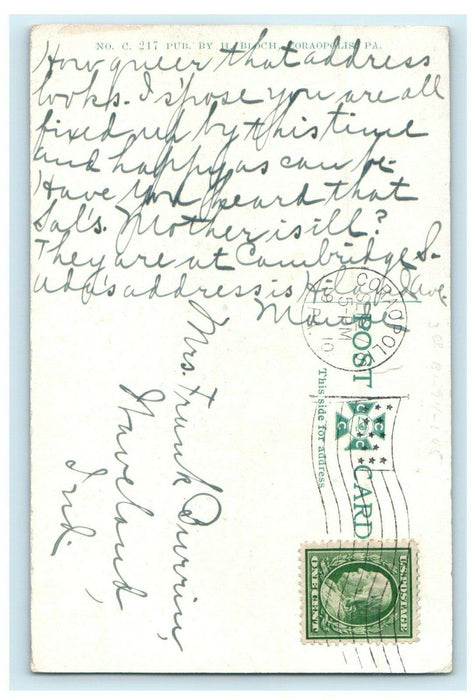 NO. C. 217 PUB. BY H. BLOCH, CORAOPOLIS, PA.
How queer that address
looks. I s'pose you are all
fixed up by this time
and happy as can be.
Have you heard that
Sal's. Mother is ill?
They are at Cambridge S.
address is
CORAOPOLIS
SEP
5-PM
1910
PA.
POST CARD
This side for address
Mrs. Frank Durrin,
Waveland,
Ind.
U.S. POSTAGE
ONE CENT